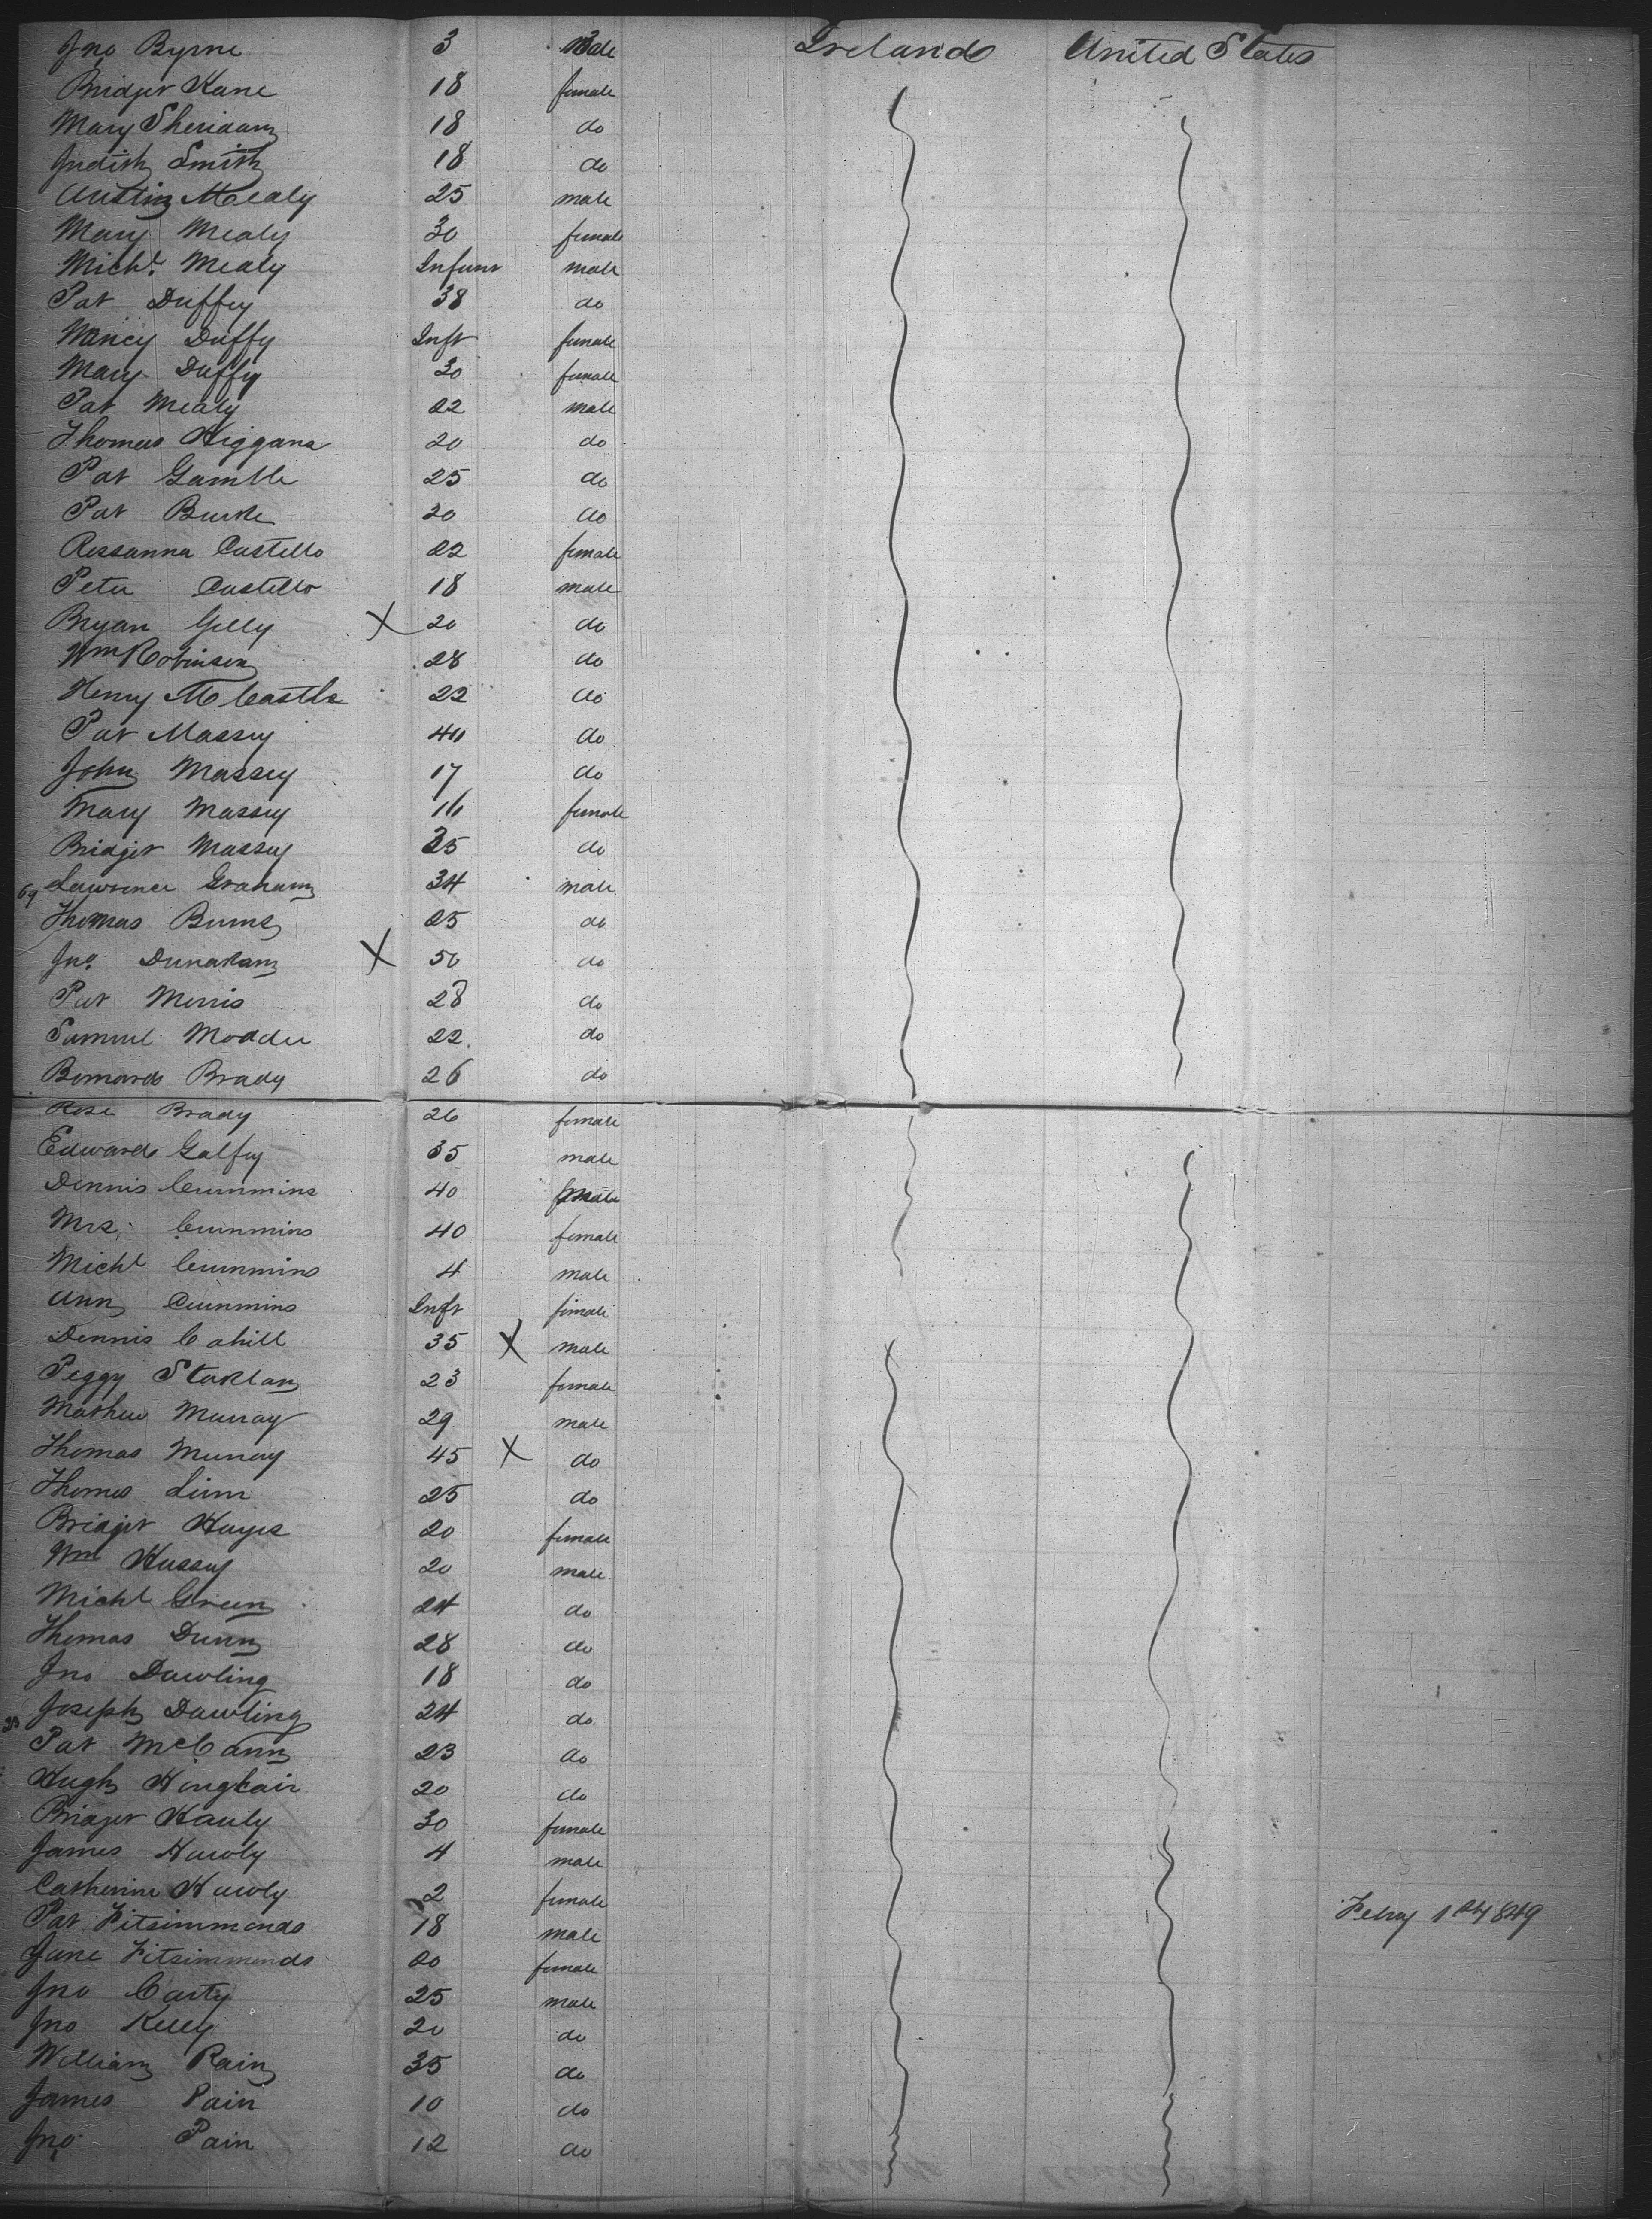 Jno Byrne 3 male Ireland United States
Bridget Kane 18 female
Mary Sheridan 18 do
Judith Smith 18 do
Austin Mealy 25 male
Mary Mealy 30 female
Michl. Mealy Infant male
Pat Duffey 38 do
Nancy Duffy Inft female
Mary Duffy 30 female
Pat Mealy 22 male
Thomas Higgans 20 do
Pat Gamble 25 do
Pat Burke 20 do
Rossanna Costello 22 female
Peter Costello 18 male
Bryan Gilly X 20 do
Wm Robinson 28 do
Henry McCastle 22 do
Pat Massey 40 do
John Massey 17 do
Mary Massey 16 female
Bridget Massey 25 do
69 Lawrence Graham 34 male
Thomas Burns 25 do
Jno. X 50 do
Pat Morris 28 do
Samuel 22. do
Bernard Brady 26 do
Rose Brady 26 female
Edward Galfey 35 male
Dennis Cummins 40 male
Mrs. Cummins 40 female
Michl Cummins 4 male
Ann Cummins Inft female
Dennis Cahill 35 X male
Peggy 23 female
Mathew Murray 29 male
Thomas Murray 45 X do
Thomas 25 do
Bridget Hayes 20 female
Wm Hussey 20 male
Michl Green 24 do
Thomas Dunn 28 do
Jno Dawling 18 do
Joseph Dawling 24 do
Pat McCann 23 do
Hugh 20 do
Bridget Hauly 30 female
James Hawly 4 male
Catherine Hawly 2 female
Pat Fitsimmonds 18 male Febry 1st 1849
Jane Fitsimmonds 20 female
Jno Carty 25 male
Jno Kelly 20 do
William Pain 35 do
James Pain 10 do
Jno Pain 12 do